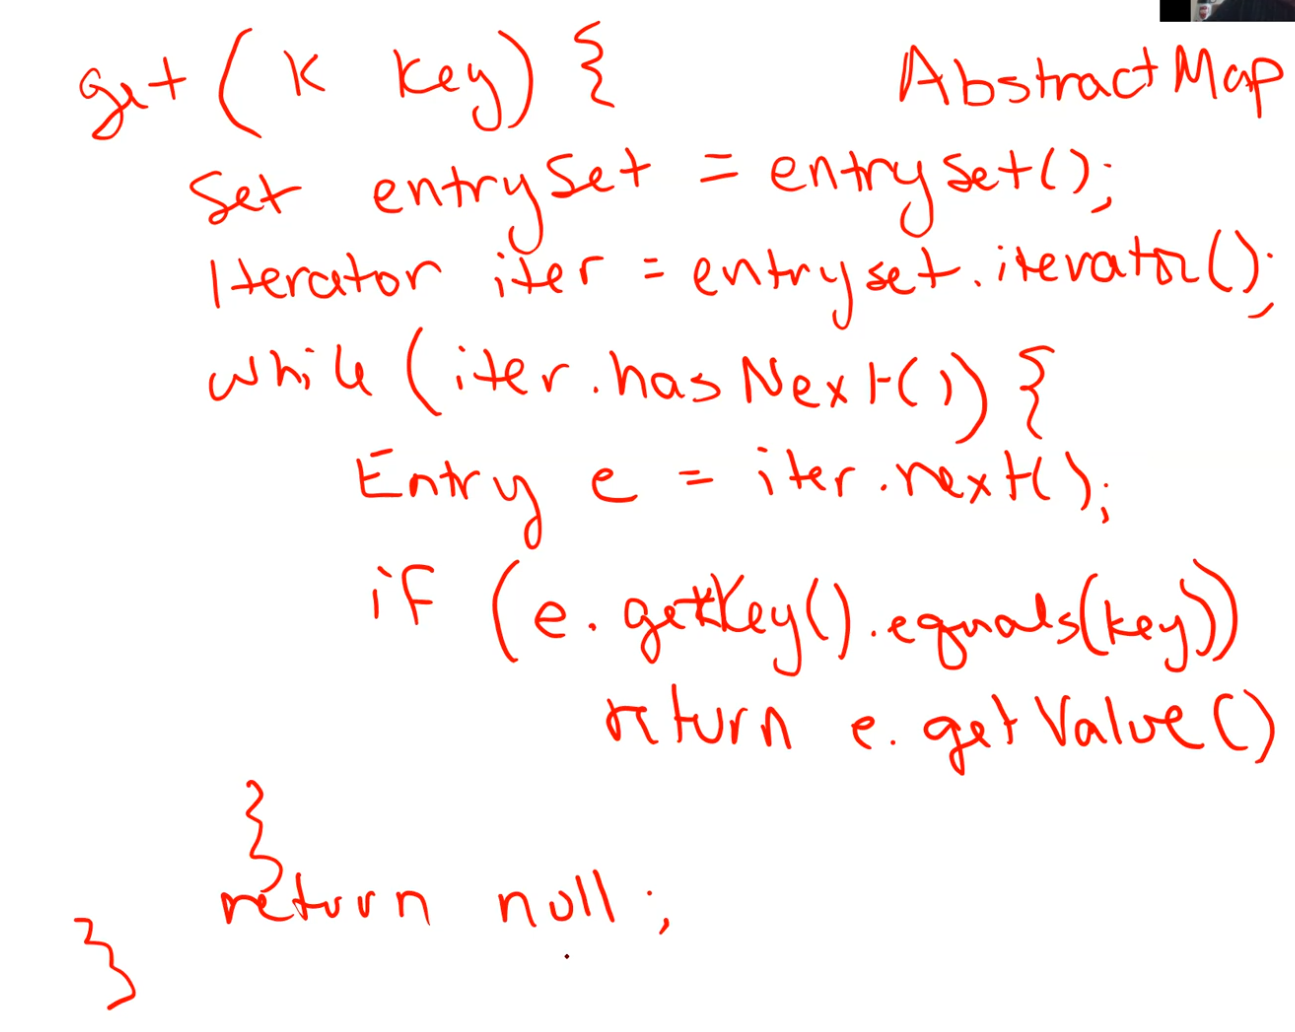 get(K key) { AbstractMap
Set entrySet = entrySet();
Iterator iter = entryset.iterator();
while (iter.hasNext()) {
Entry e = iter.next();
if (e.getKey().equals(key))
return e.getValue()
}
return null;
}